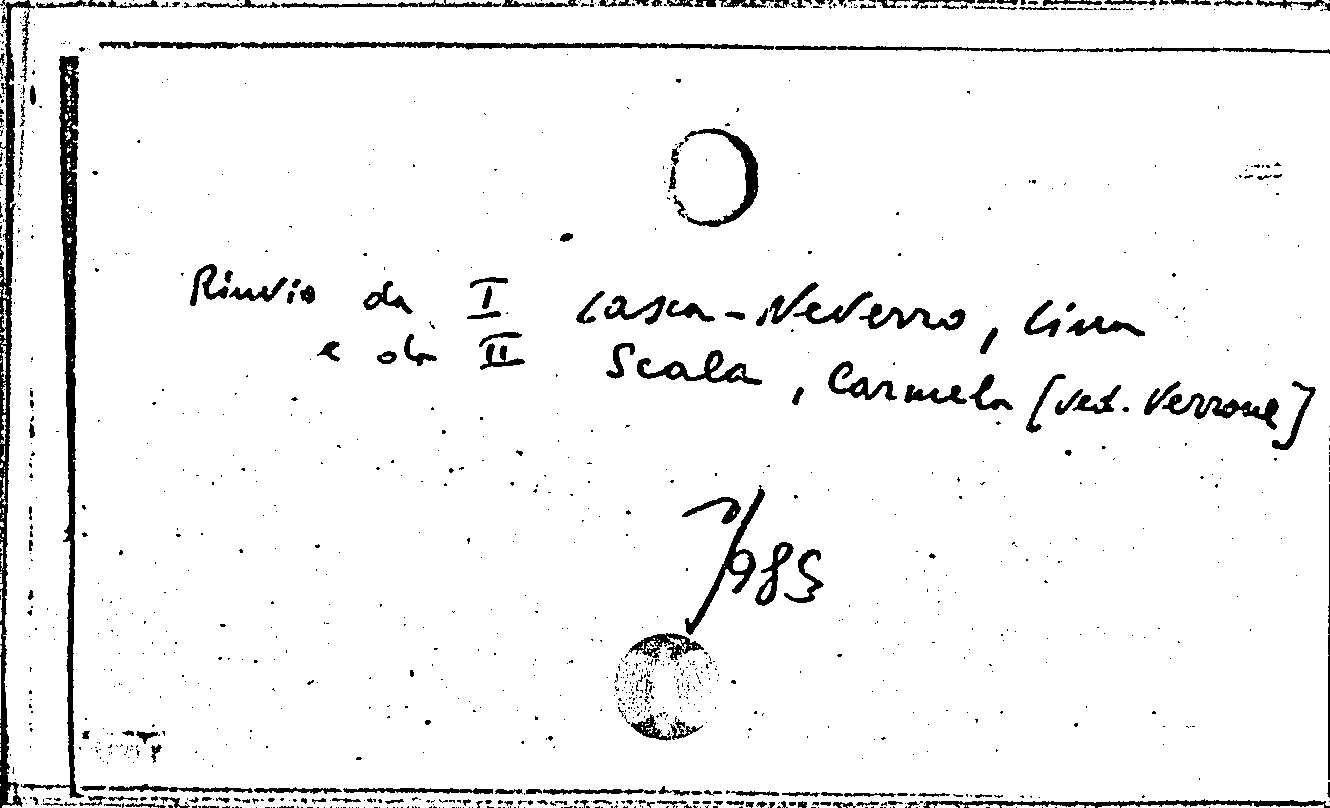 Rinvio da I Casca-Neverro, Lina
e da II Scala, Carmela [ved. Verrone]
7/985